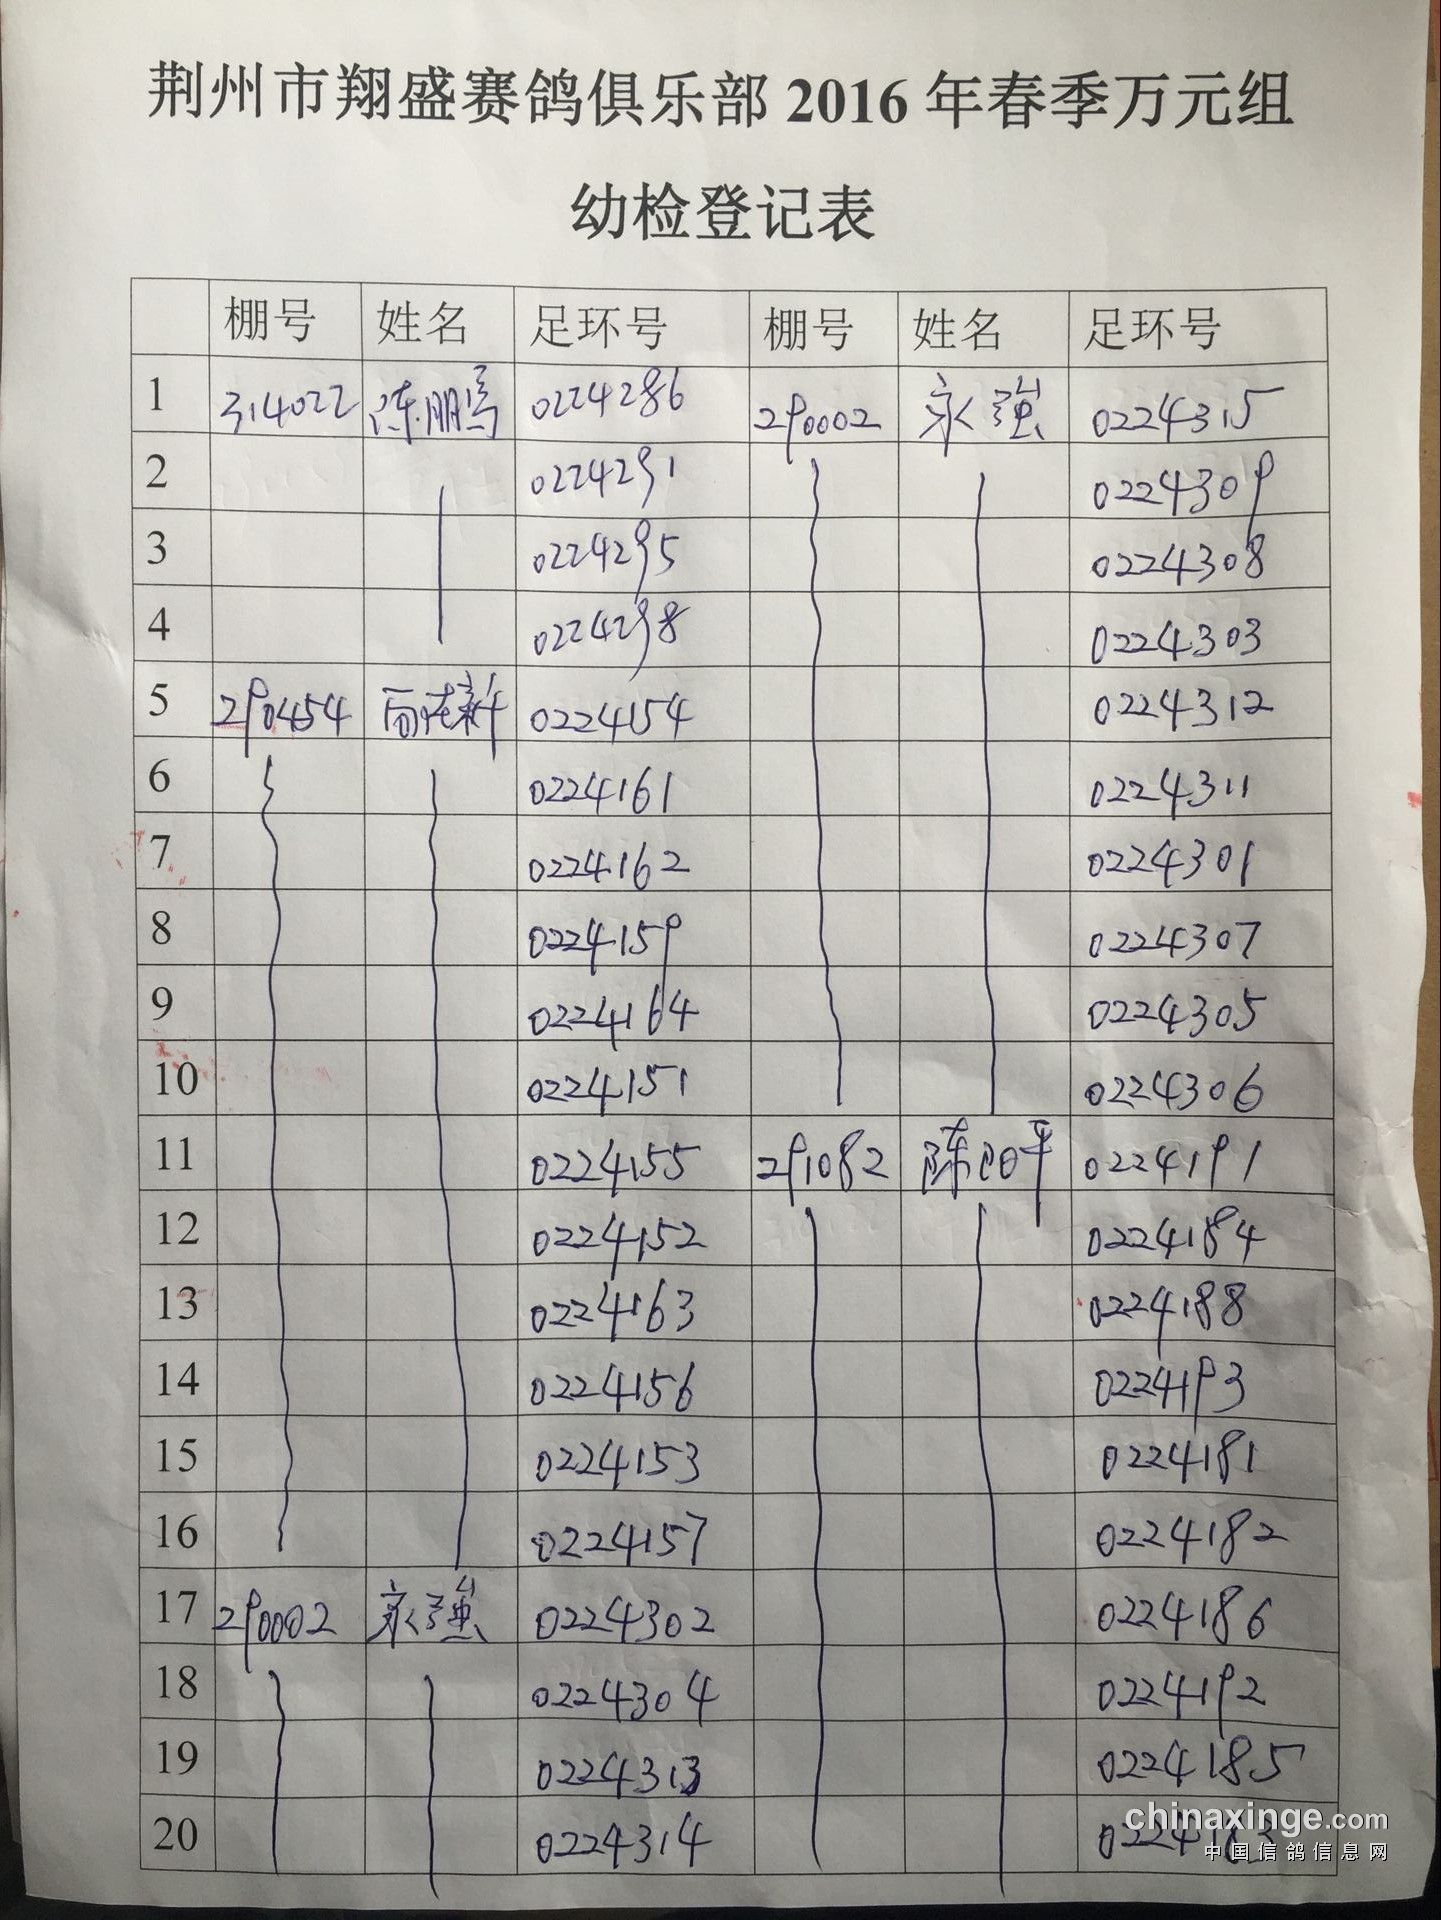 荆州市翔盛赛鸽俱乐部 2016 年春季万元组
幼检登记表
棚号 姓名 足环号 棚号 姓名 足环号
1 314022 陈鹏 0224286 290002 永强 0224315
2 0224291 0224309
3 0224295 0224308
4 0224298 0224303
5 290454 新 0224154 0224312
6 0224161 0224311
7 0224162 0224301
8 0224159 0224307
9 0224164 0224305
10 0224151 0224306
11 0224155 291082 陈阳平 0224191
12 0224152 0224184
13 0224163 0224188
14 0224156 0224193
15 0224153 0224181
16 0224157 0224182
17 290002 永强 0224302 0224186
18 0224304 0224192
19 0224313 0224185
20 0224314 0224183
chinaxinge.com
中国信鸽信息网